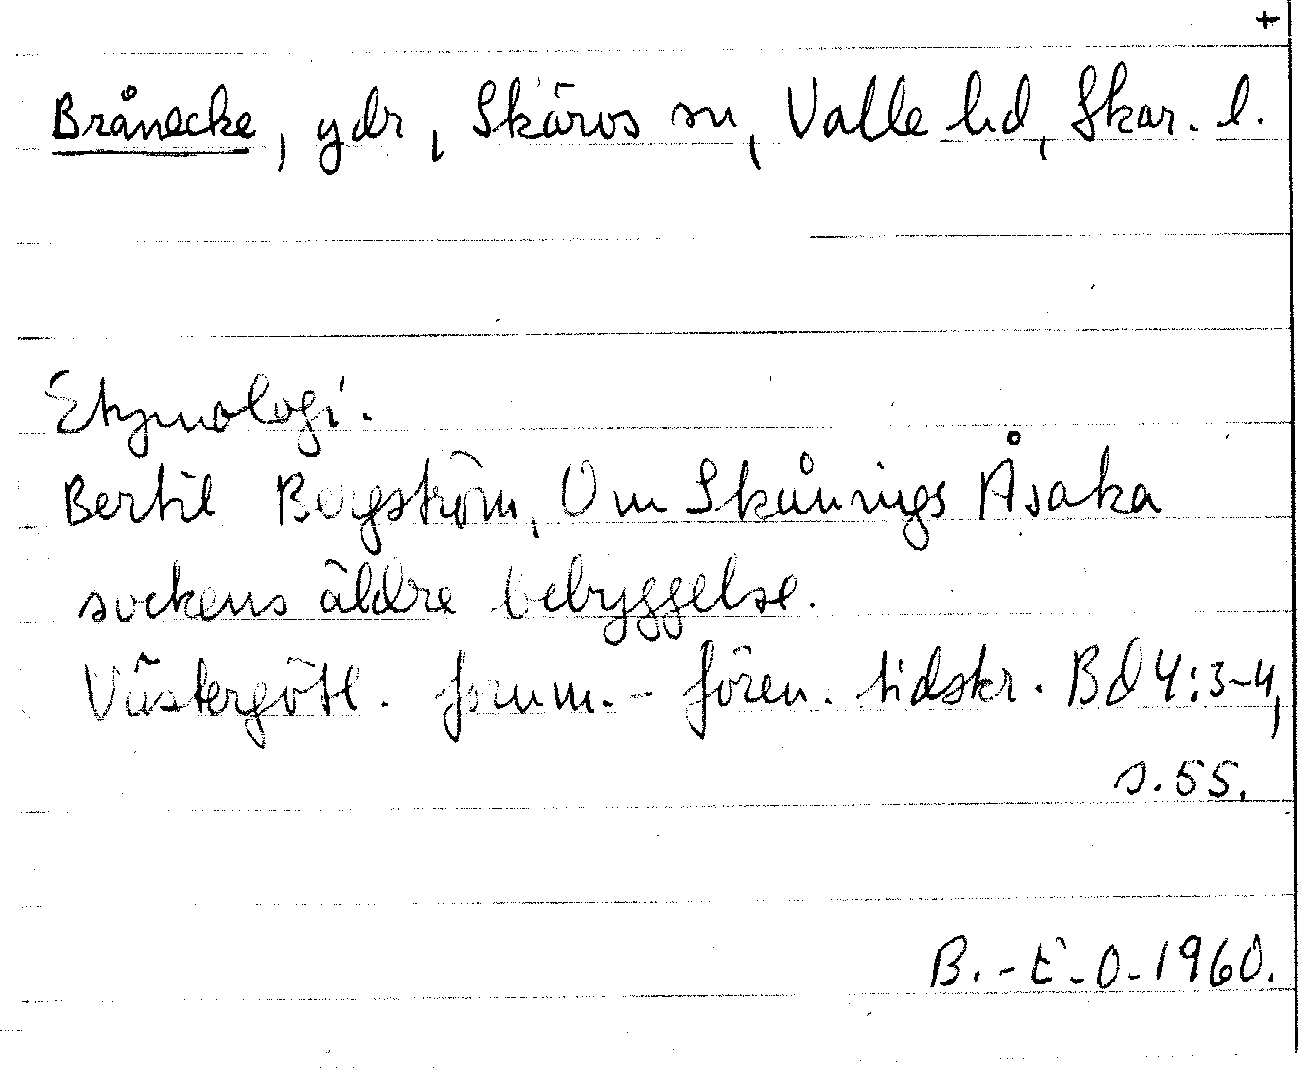 +
Brånecke, ydr, Skärvs sn, Valle hd, Skar. l.
Etymologi.
Bertil Bergström, Om Skånings Åsaka
sockens äldre bebyggelse.
Västergötl. fornm.-fören. tidskr. Bd 4:3-4,
s. 55.
B.-E-O-1960.